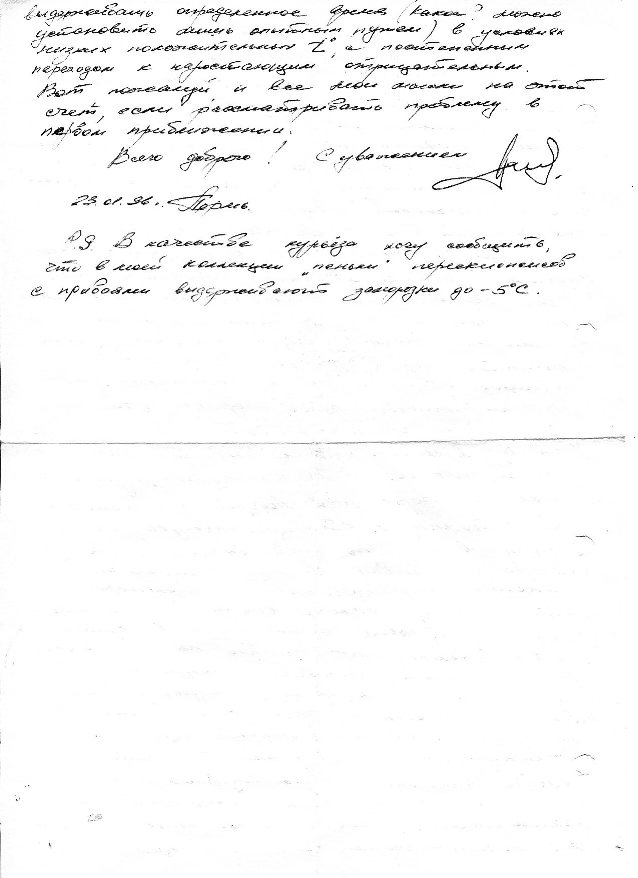 выдерживать определенное время (какое? можно
установить лишь опытным путем) в условиях
низких положительных t°, с постепенным
переходом к нарастающим отрицательным.
Вот пожалуй и все мои мысли на этот
счет, если рассматривать проблему в
первом приближении.
Всего доброго! С уважением
23.01.96г. Пермь.
P.S. В качестве курьёза хочу сообщить,
что в моей коллекции „пеньки" перескиопсисов
с привоями выдерживают заморозки до -5°С.